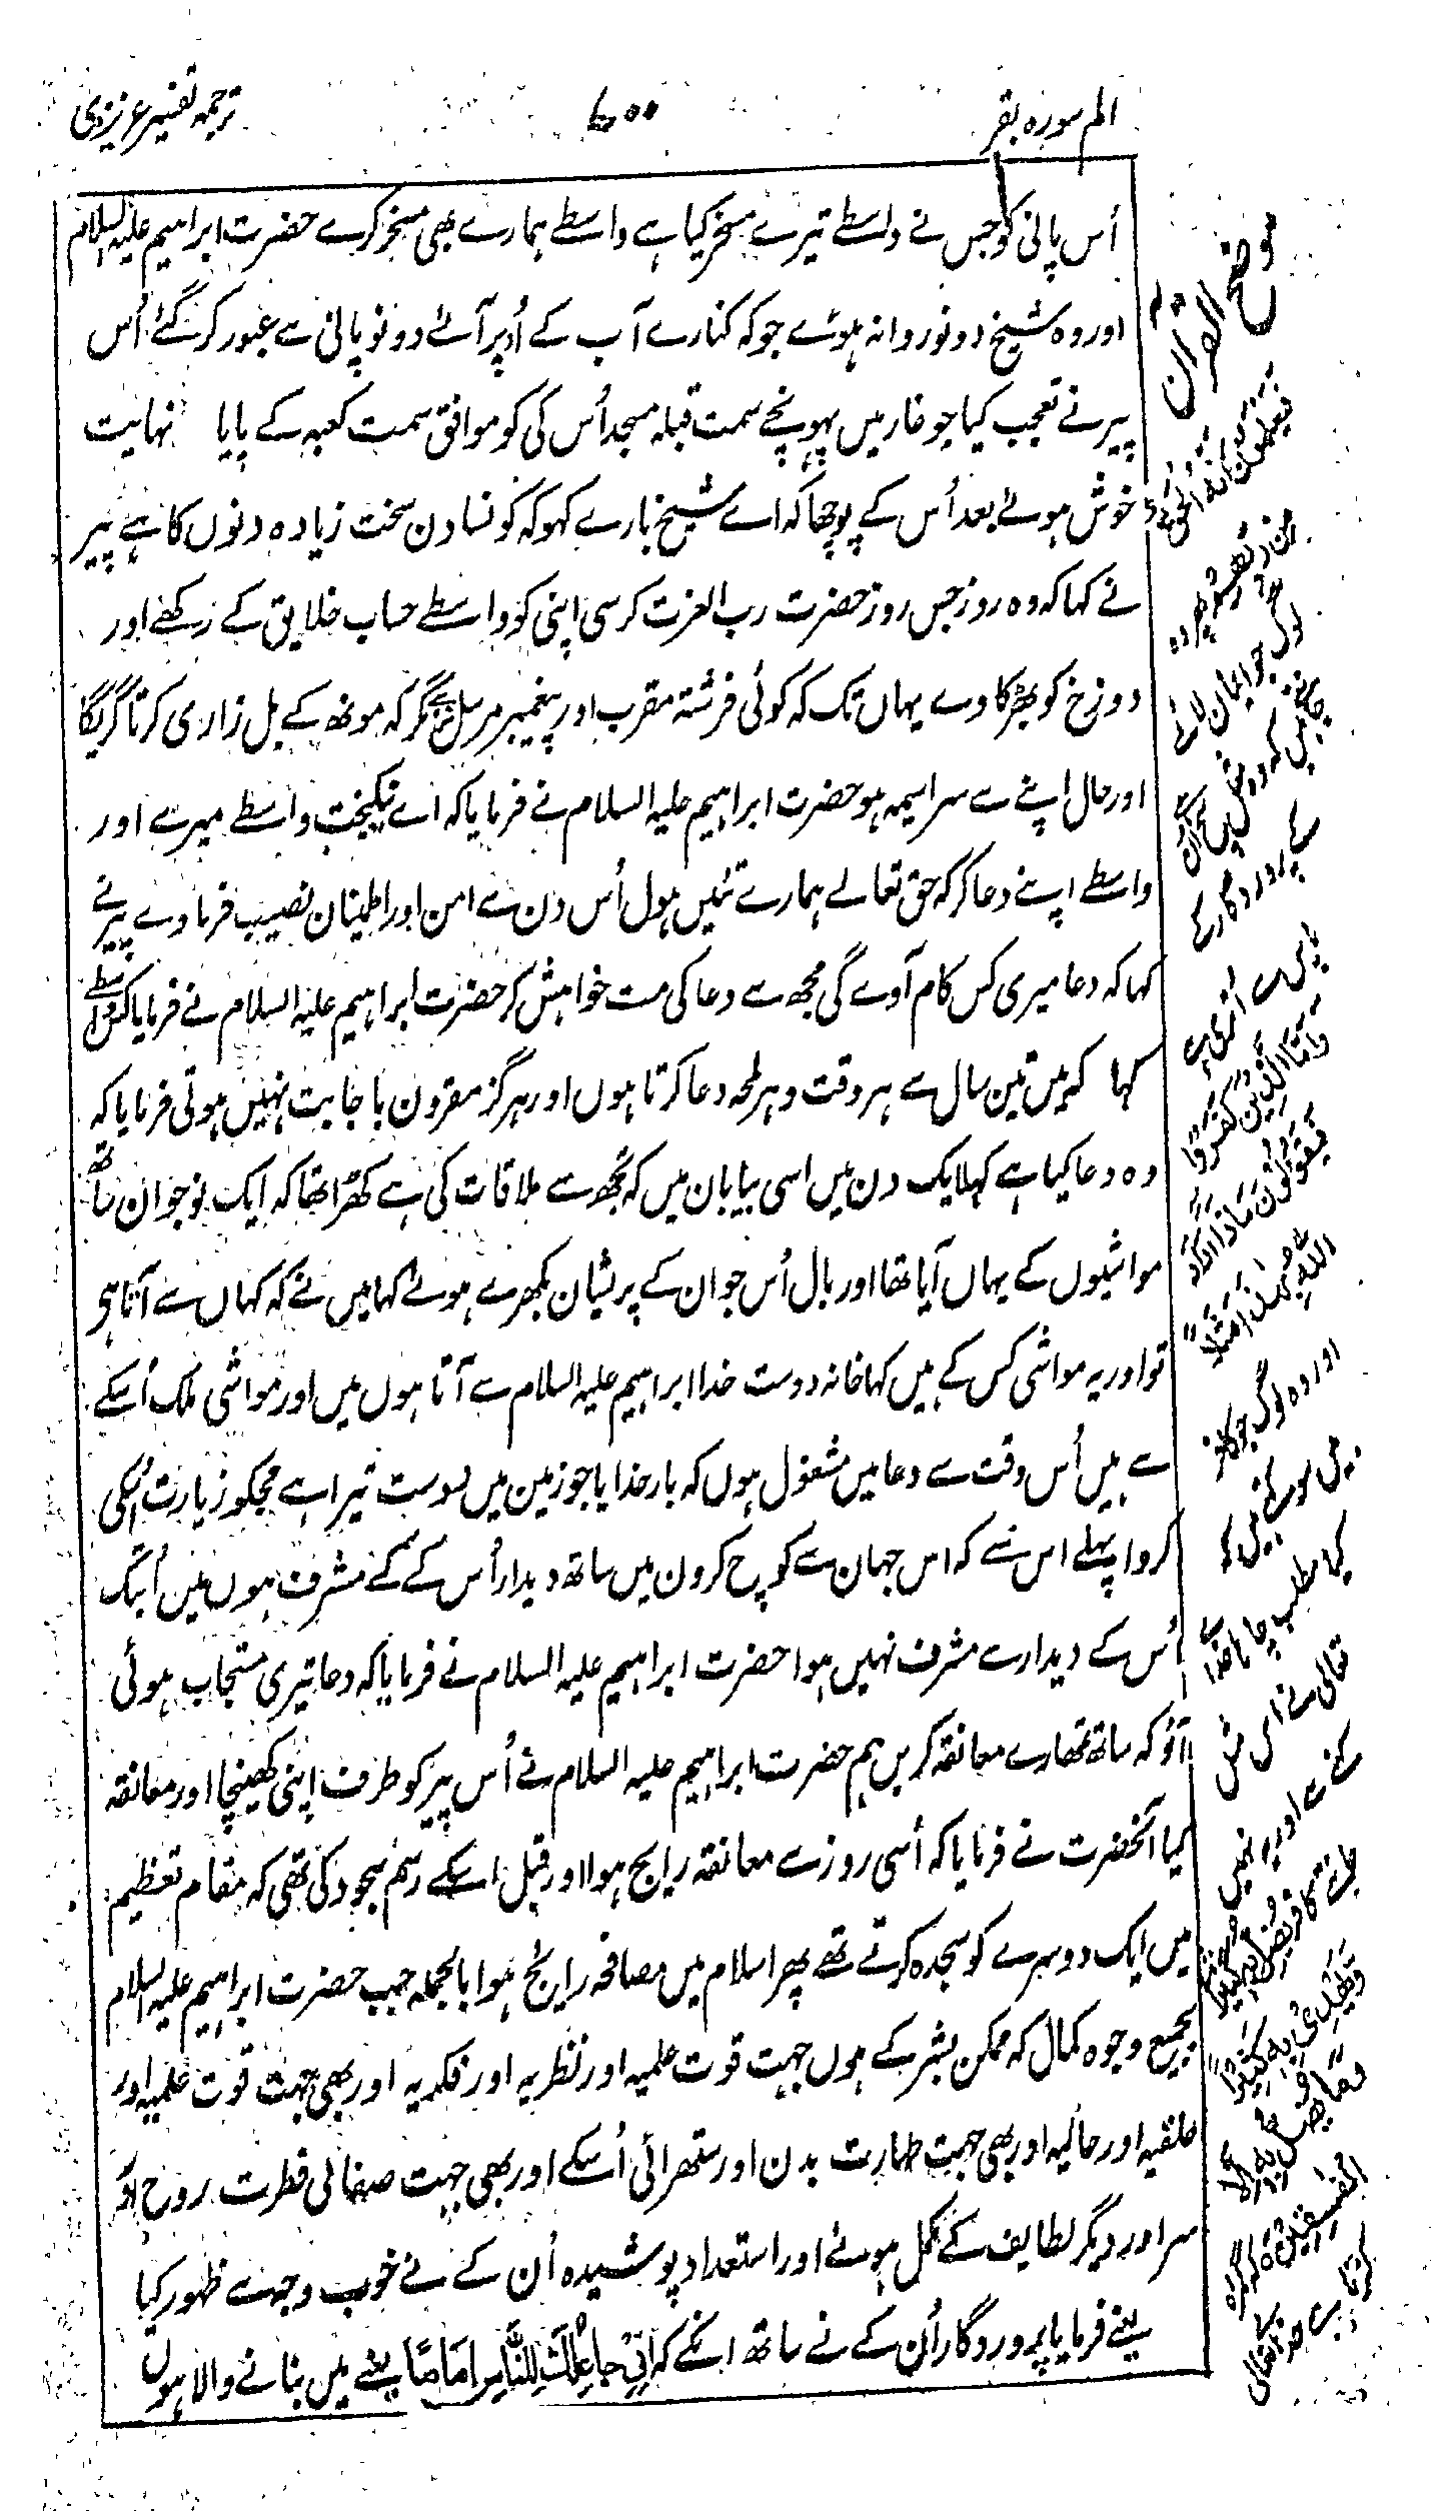 الم سوره بقر
۶۰۰
ترجمہ تفسیر عزیزی
اُس پانی کو جس نے واسطے تیرے مسخر کیا ہے واسطے ہمارے بھی مسخر کرے حضرت ابراہیم علیہ السلام
اور وہ شیخ دونو روانہ ہوئے جو کہ کنارے آب کے اُوپر آئے دونو پانی سے عبور کر گئے اُس
پیر نے تعجب کیا جو غار میں پہونچے سمت قبلہ مسجد اُس کی کو موافق سمت کعبہ کے پایا نہایت
خوش ہوئے بعد اُس کے پوچھا کہ اے شیخ بارے کہو کہ کونسا دن سخت زیادہ دنوں کا ہے پیر
نے کہا کہ وہ روز جس روز حضرت رب العزت کرسی اپنی کو واسطے حساب خلایق کے رکھے اور
دوزخ کو بھڑکاوے یہاں تک کہ کوئی فرشتہ مقرب اور پیغمبر مرسل مگر کہ مونھ کے بل زاری کرتا گریگا
اور حال اپنے سے سراسیمہ ہو حضرت ابراہیم علیہ السلام نے فرمایا کہ اے نیکبخت واسطے میرے اور
واسطے اپنے دعا کر کہ حق تعالے ہمارے تئیں ہول اُس دن سے امن اور اطمینان نصیب فرماوے پیر نے
کہا کہ دعا میری کس کام آوے گی مجھ سے دعا کی مت خواہش کر حضرت ابراہیم علیہ السلام نے فرمایا کس واسطے
کہا کہ میں تین سال سے ہر وقت و ہر لمحہ دعا کرتا ہوں اور ہرگز مقرون باجابت نہیں ہوتی فرمایا کہ
وہ دعا کیا ہے کہا ایک دن میں اسی بیابان میں کہ تجھ سے ملاقات کی ہے کھڑا تھا کہ ایک نوجوان ساتھ
مواشیوں کے یہاں آیا تھا اور بال اُس جوان کے پریشان بکھرے ہوئے کہا میں نے کہ کہاں سے آتا ہی
تو اور یہ مواشی کس کے ہیں کہا خانہ دوست خدا ابراہیم علیہ السلام سے آتا ہوں میں اور مواشی ملک اُسکے
سے ہیں اُس وقت سے دعا میں مشغول ہوں کہ بار خدایا جو زمین میں دوست تیرا ہے مجکو زیارت اُسکی
کروا پہلے اس سے کہ اس جہان سے کوچ کرون میں ساتھ دیدار اُس کے کے مشرف ہوں میں اُبتک
اُس کے دیدار سے مشرف نہیں ہوا حضرت ابراہیم علیہ السلام نے فرمایا کہ دعا تیری مستجاب ہوئی
آؤ کہ ساتھ تمھارے معانقہ کریں ہم حضرت ابراہیم علیہ السلام نے اُس پیر کو طرف اپنی کھینچا اور معانقہ
کیا آنحضرت نے فرمایا کہ اُسی روز سے معانقہ رایج ہوا اور قبل اسکے رسم سجود کی تھی کہ مقام تعظیم
میں ایک دوسرے کو سجدہ کرتے تھے پھر اسلام میں مصافحہ رایج ہوا بالجملہ جب حضرت ابراہیم علیہ السلام
بجمیع وجوہ کمال کہ ممکن بشر کے ہوں جہت قوت علمیہ اور نظریہ اور فکریہ اور بھی جہت قوت عملیہ اور
خلقیہ اور حالیہ اور بھی جہت طہارت بدن اور ستھرائی اُسکے اور بھی جہت صفائی فطرت روح اور
سر اور دیگر لطایف کے مکمل ہوئے اور استعداد پوشیدہ اُن کے نے خوب وجہ سے ظہور کیا
یعنے فرمایا پروردگار اُن کے نے ساتھ انکے کہ اِنِّیْ جَاعِلُکَ لِلنَّاسِ اِمَامًا یعنے میں بنانے والا ہوں
موضح القرآن
فیعلمون انہ الحق
من ربهم
لوگ جو ایمان لائے
جانتے ہیں کہ وہ
پروردگار کے
واما الذین کفروا
فیقولون ماذا اراد
اللہ بهذا مثلا
اور وہ لوگ جو کافر
ہیں سو کہتے ہیں کہ
کیا مطلب چاہا خدا
تعالی نے اس مثل
یضل بہ کثیرا
ویهدی بہ کثیرا
وما یضل بہ الا
الفسقین